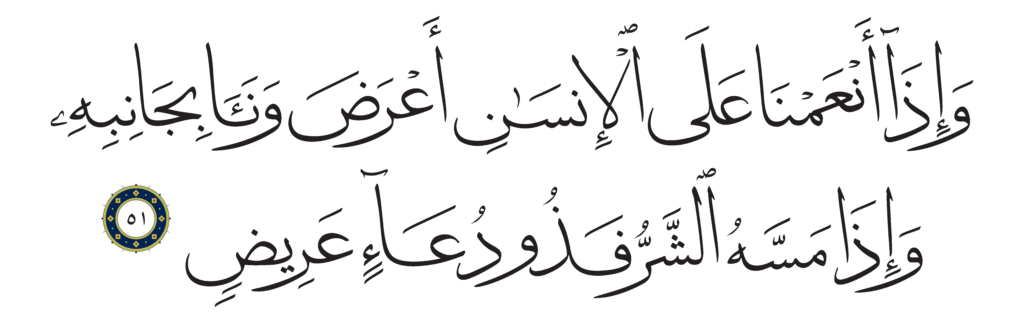 وَإِذَآ أَنْعَمْنَا عَلَى ٱلْإِنسَٰنِ أَعْرَضَ وَنَـَٔا بِجَانِبِهِۦ
وَإِذَا مَسَّهُ ٱلشَّرُّ فَذُو دُعَآءٍ عَرِيضٍ ٥١